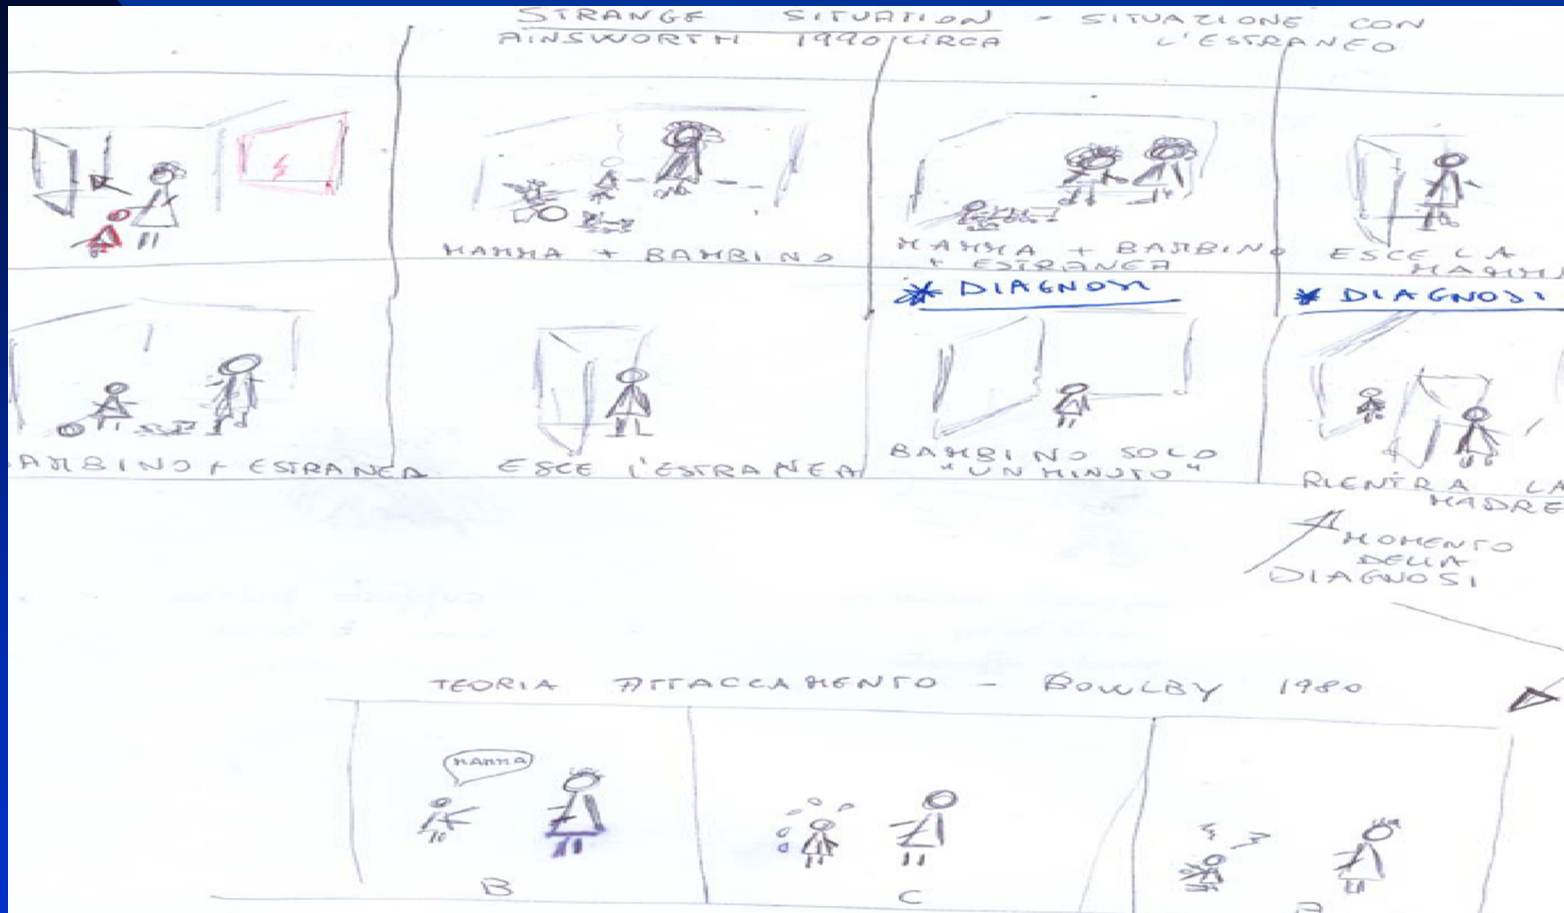 STRANGE SITUATION - SITUAZIONE CON
AINSWORTH 1990 CIRCA L'ESTRANEO
MAMMA + BAMBINO
MAMMA + BAMBINO
+ ESTRANEA
ESCE LA
MAMM
* DIAGNOSI
* DIAGNOSI
AMBINO + ESTRANEA
ESCE L'ESTRANEA
BAMBINO SOLO
"UN MINUTO"
RIENTRA LA
MADRE
MOMENTO
DELLA
DIAGNOSI
TEORIA ATTACCAMENTO - BOWLBY 1980
MAMMA
B
C